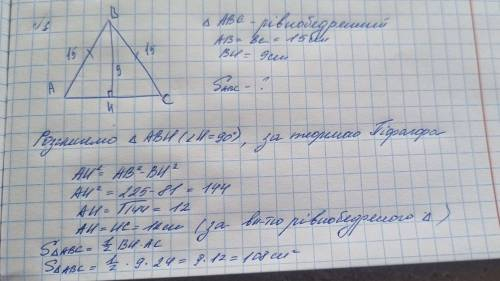 №1
B
△ ABC - рівнобедрений
AB = BC = 15см
BH = 9см
15
15
9
A
H
C
S ABC - ?
Розглянемо △ ABH (∠H=90°), за теоремою Піфагора
AH² = AB² - BH²
AH² = 225-81 = 144
AH = √144 = 12
AH = HC = 12см (за вл-тю рівнобедреного △)
S△ABC = 1/2 BH·AC
S△ABC = 1/2 · 9 · 24 = 9 · 12 = 108см²